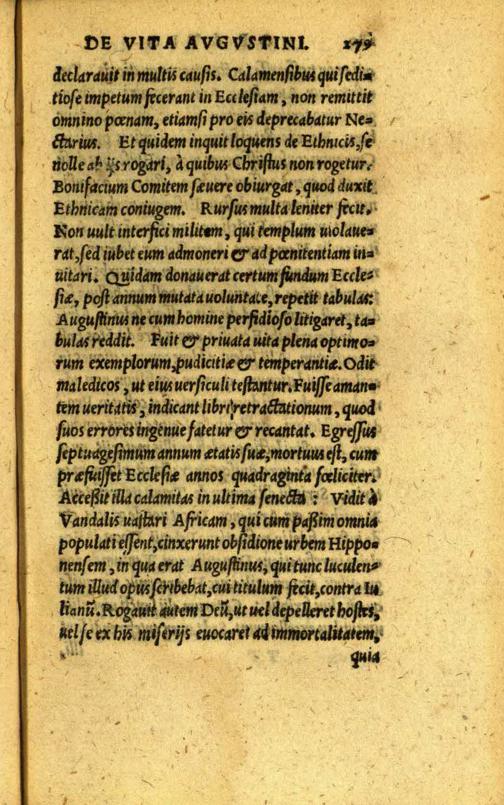 DE VITA AVGVSTINI. 279
declarauit in multis causis. Calamensibus qui sedi=
tiose impetum fecerant in Ecclesiam, non remittit
omnino pœnam, etiamsi pro eis deprecabatur Ne=
ctarius. Et quidem inquit loquens de Ethnicis, se
nolle ab ijs rogari, à quibus Christus non rogetur.
Bonifacium Comitem sæuere obiurgat, quod duxit
Ethnicam coniugem. Rursus multa leniter fecit.
Non uult interfici militem, qui templum uiolaue=
rat, sed iubet eum admoneri & ad pœnitentiam in=
uitari. Quidam donauerat certum fundum Eccle=
siæ, post annum mutata uoluntate, repetit tabulas:
Augustinus ne cum homine perfidioso litigaret, ta=
bulas reddit. Fuit & priuata uita plena optimo=
rum exemplorum, pudicitiæ & temperantiæ. Odit
maledicos, ut eius uersiculi testantur. Fuisse aman=
tem ueritatis, indicant libri retractationum, quod
suos errores ingenue fatetur & recantat. Egressus
septuagesimum annum ætatis suæ, mortuus est, cum
præfuisset Ecclesiæ annos quadraginta fœliciter.
Accessit illa calamitas in ultima senecta: Vidit à
Vandalis uastari Africam, qui cum passim omnia
populati essent, cinxerunt obsidione urbem Hippo=
nensem, in qua erat Augustinus, qui tunc luculen=
tum illud opus scribebat, cui titulum fecit, contra Iu
lianū. Rogauit autem Deū, ut uel depelleret hostes,
uel se ex his miserijs euocaret ad immortalitatem,
quia